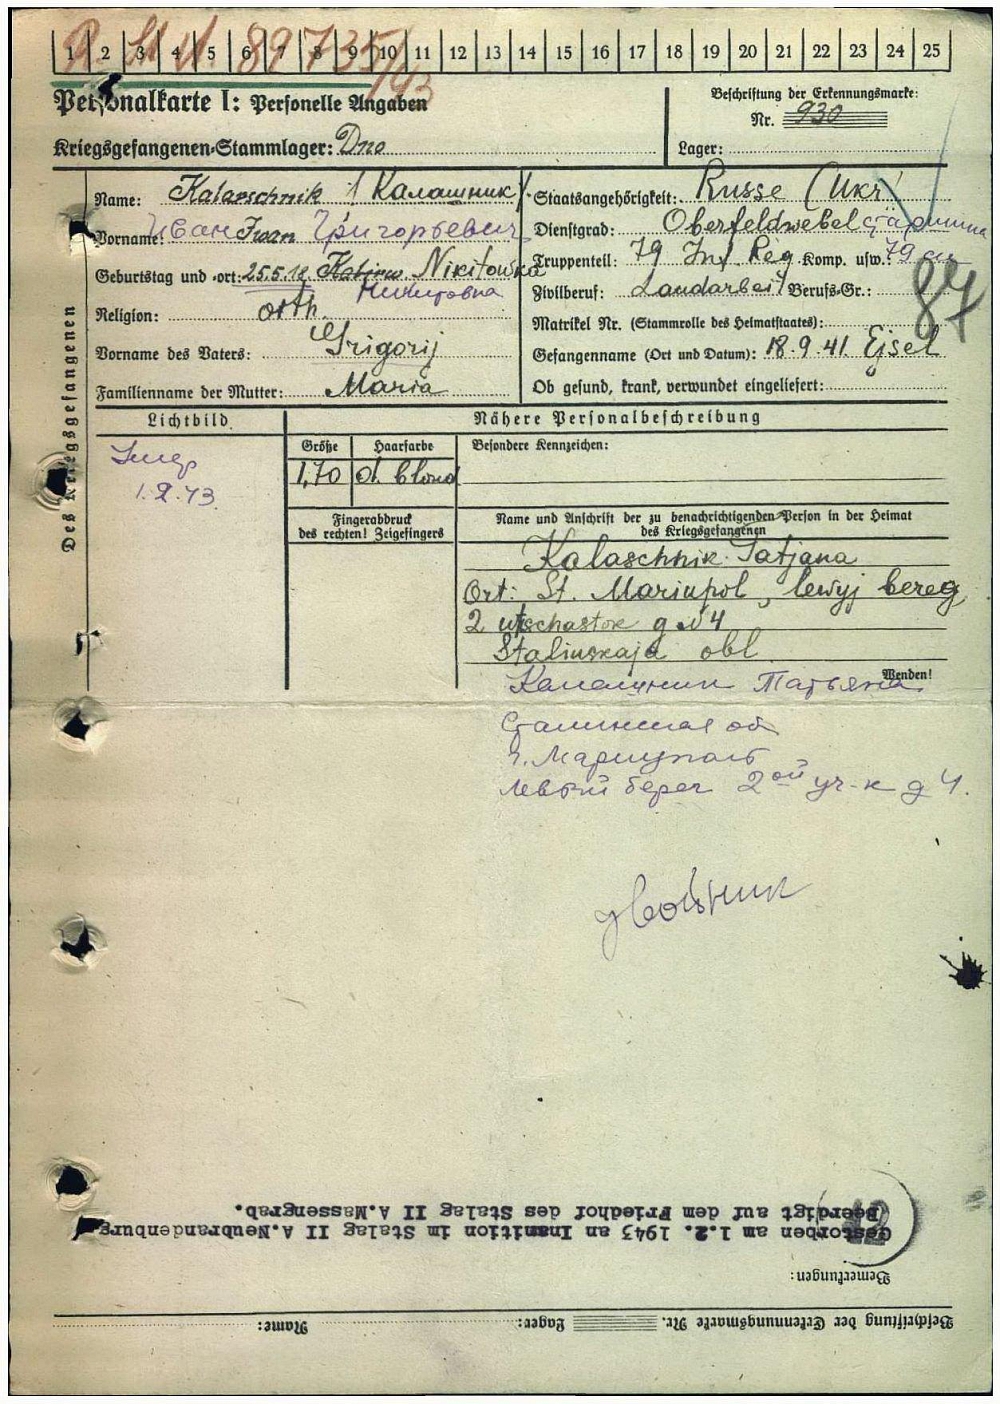 1 2 3 4 5 6 7 8 9 10 11 12 13 14 15 16 17 18 19 20 21 22 23 24 25
Personalkarte I: Personelle Angaben
Kriegsgefangenen-Stammlager: Dno
Beschriftung der Erkennungsmarke:
Nr. 930
Lager:
Des Kriegsgefangenen
Name: Kalaschnik / Калашник /
Vorname: Иван Iwan Григорьевич
Geburtstag und -ort: 25.5.12. Nikitowka
Никитовка
Religion: orth.
Vorname des Vaters: Grigorij
Familienname der Mutter: Maria
Staatsangehörigkeit: Russe (Ukr)
Dienstgrad: Oberfeldwebel старшина
Truppenteil: 79 Inf Reg. Komp. usw.: 79 сп
Zivilberuf: Landarbeit Berufs-Gr.:
87
Matrikel Nr. (Stammrolle des Heimatstaates):
Gefangenname (Ort und Datum): 18.9.41. Ejsel
Ob gesund, krank, verwundet eingeliefert:
Lichtbild
Умер
1.2.43
Nähere Personalbeschreibung
Größe Haarfarbe Besondere Kennzeichen:
1,70 d. blond
Fingerabdruck
des rechten! Zeigefingers
Name und Anschrift der zu benachrichtigenden Person in der Heimat
des Kriegsgefangenen
Kalaschnik Tatjana
Ort: St. Mariupol, lewyj bereg,
2 utschastok d N 4
Stalinskaja obl
Wenden!
Калашник Татьяна
Сталинская об
г. Мариуполь
левый берег 2ой уч-к д 4.
двойник
Beschriftung der Erkennungsmarke Nr. Lager: Name:
Bemerkungen:
Gestorben am 1.2. 1943 an Inanition im Stalag II A.Neubrandenburg
Beerdigt auf dem Friedhof des Stalag II A.Massengrab.